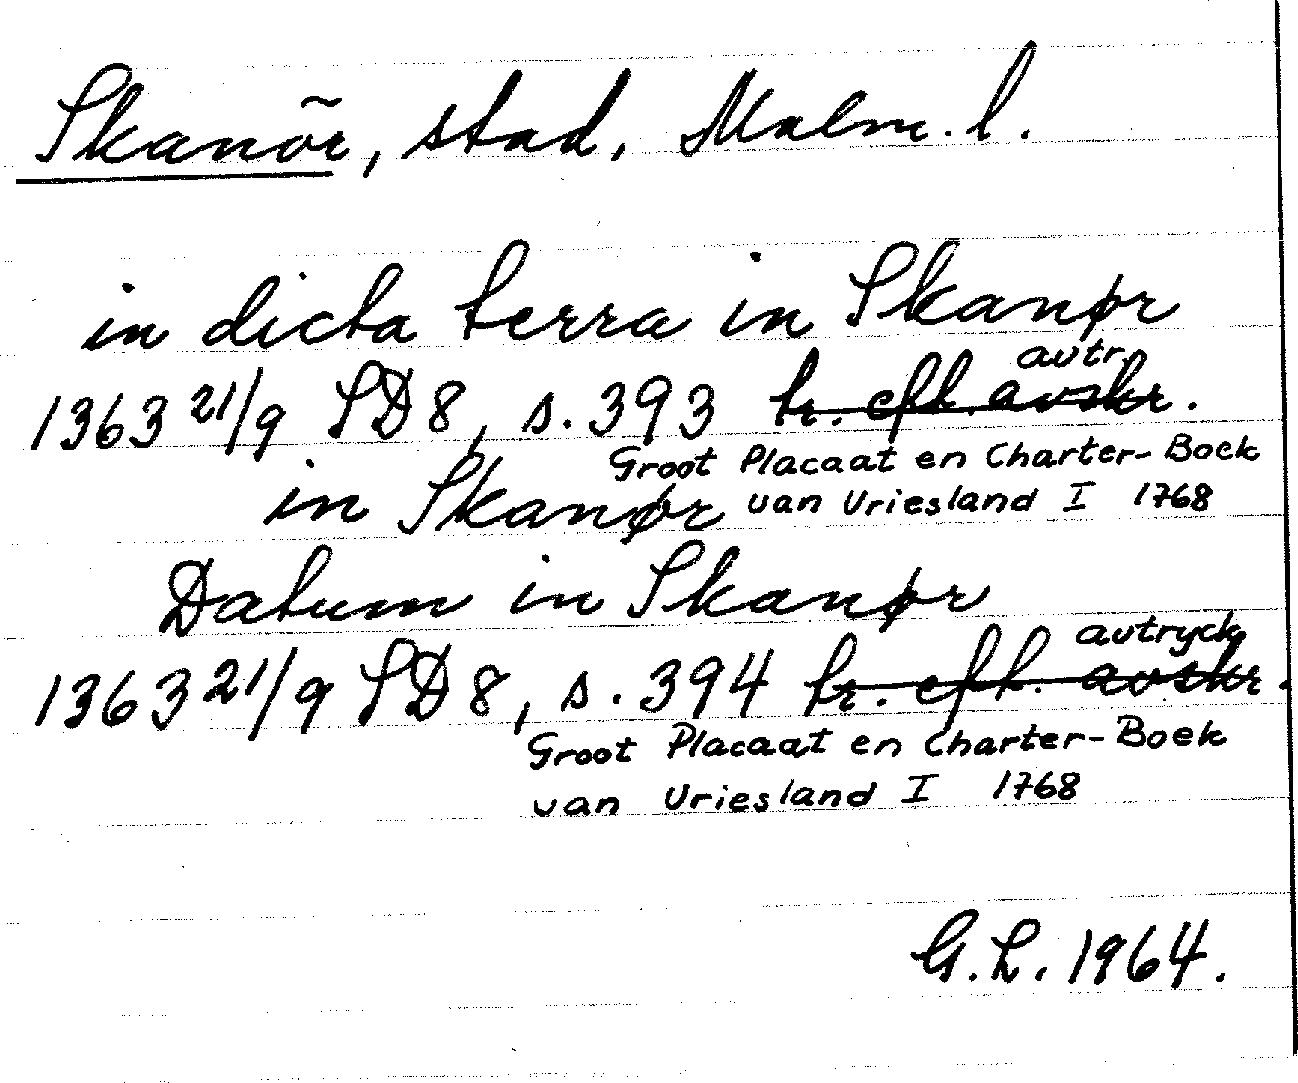 Skanör, stad, Malm. l.
in dicta terra in Skanør
avtr.
1363 21/9 SD 8, s. 393 tr. eft. avskr.
Groot Placaat en Charter-Boek
in Skanør van Vriesland I 1768
Datum in Skanør
avtryck
1363 21/9 SD 8, s. 394 tr. eft. avskr.
Groot Placaat en Charter-Boek
van Vriesland I 1768
G.L. 1964.